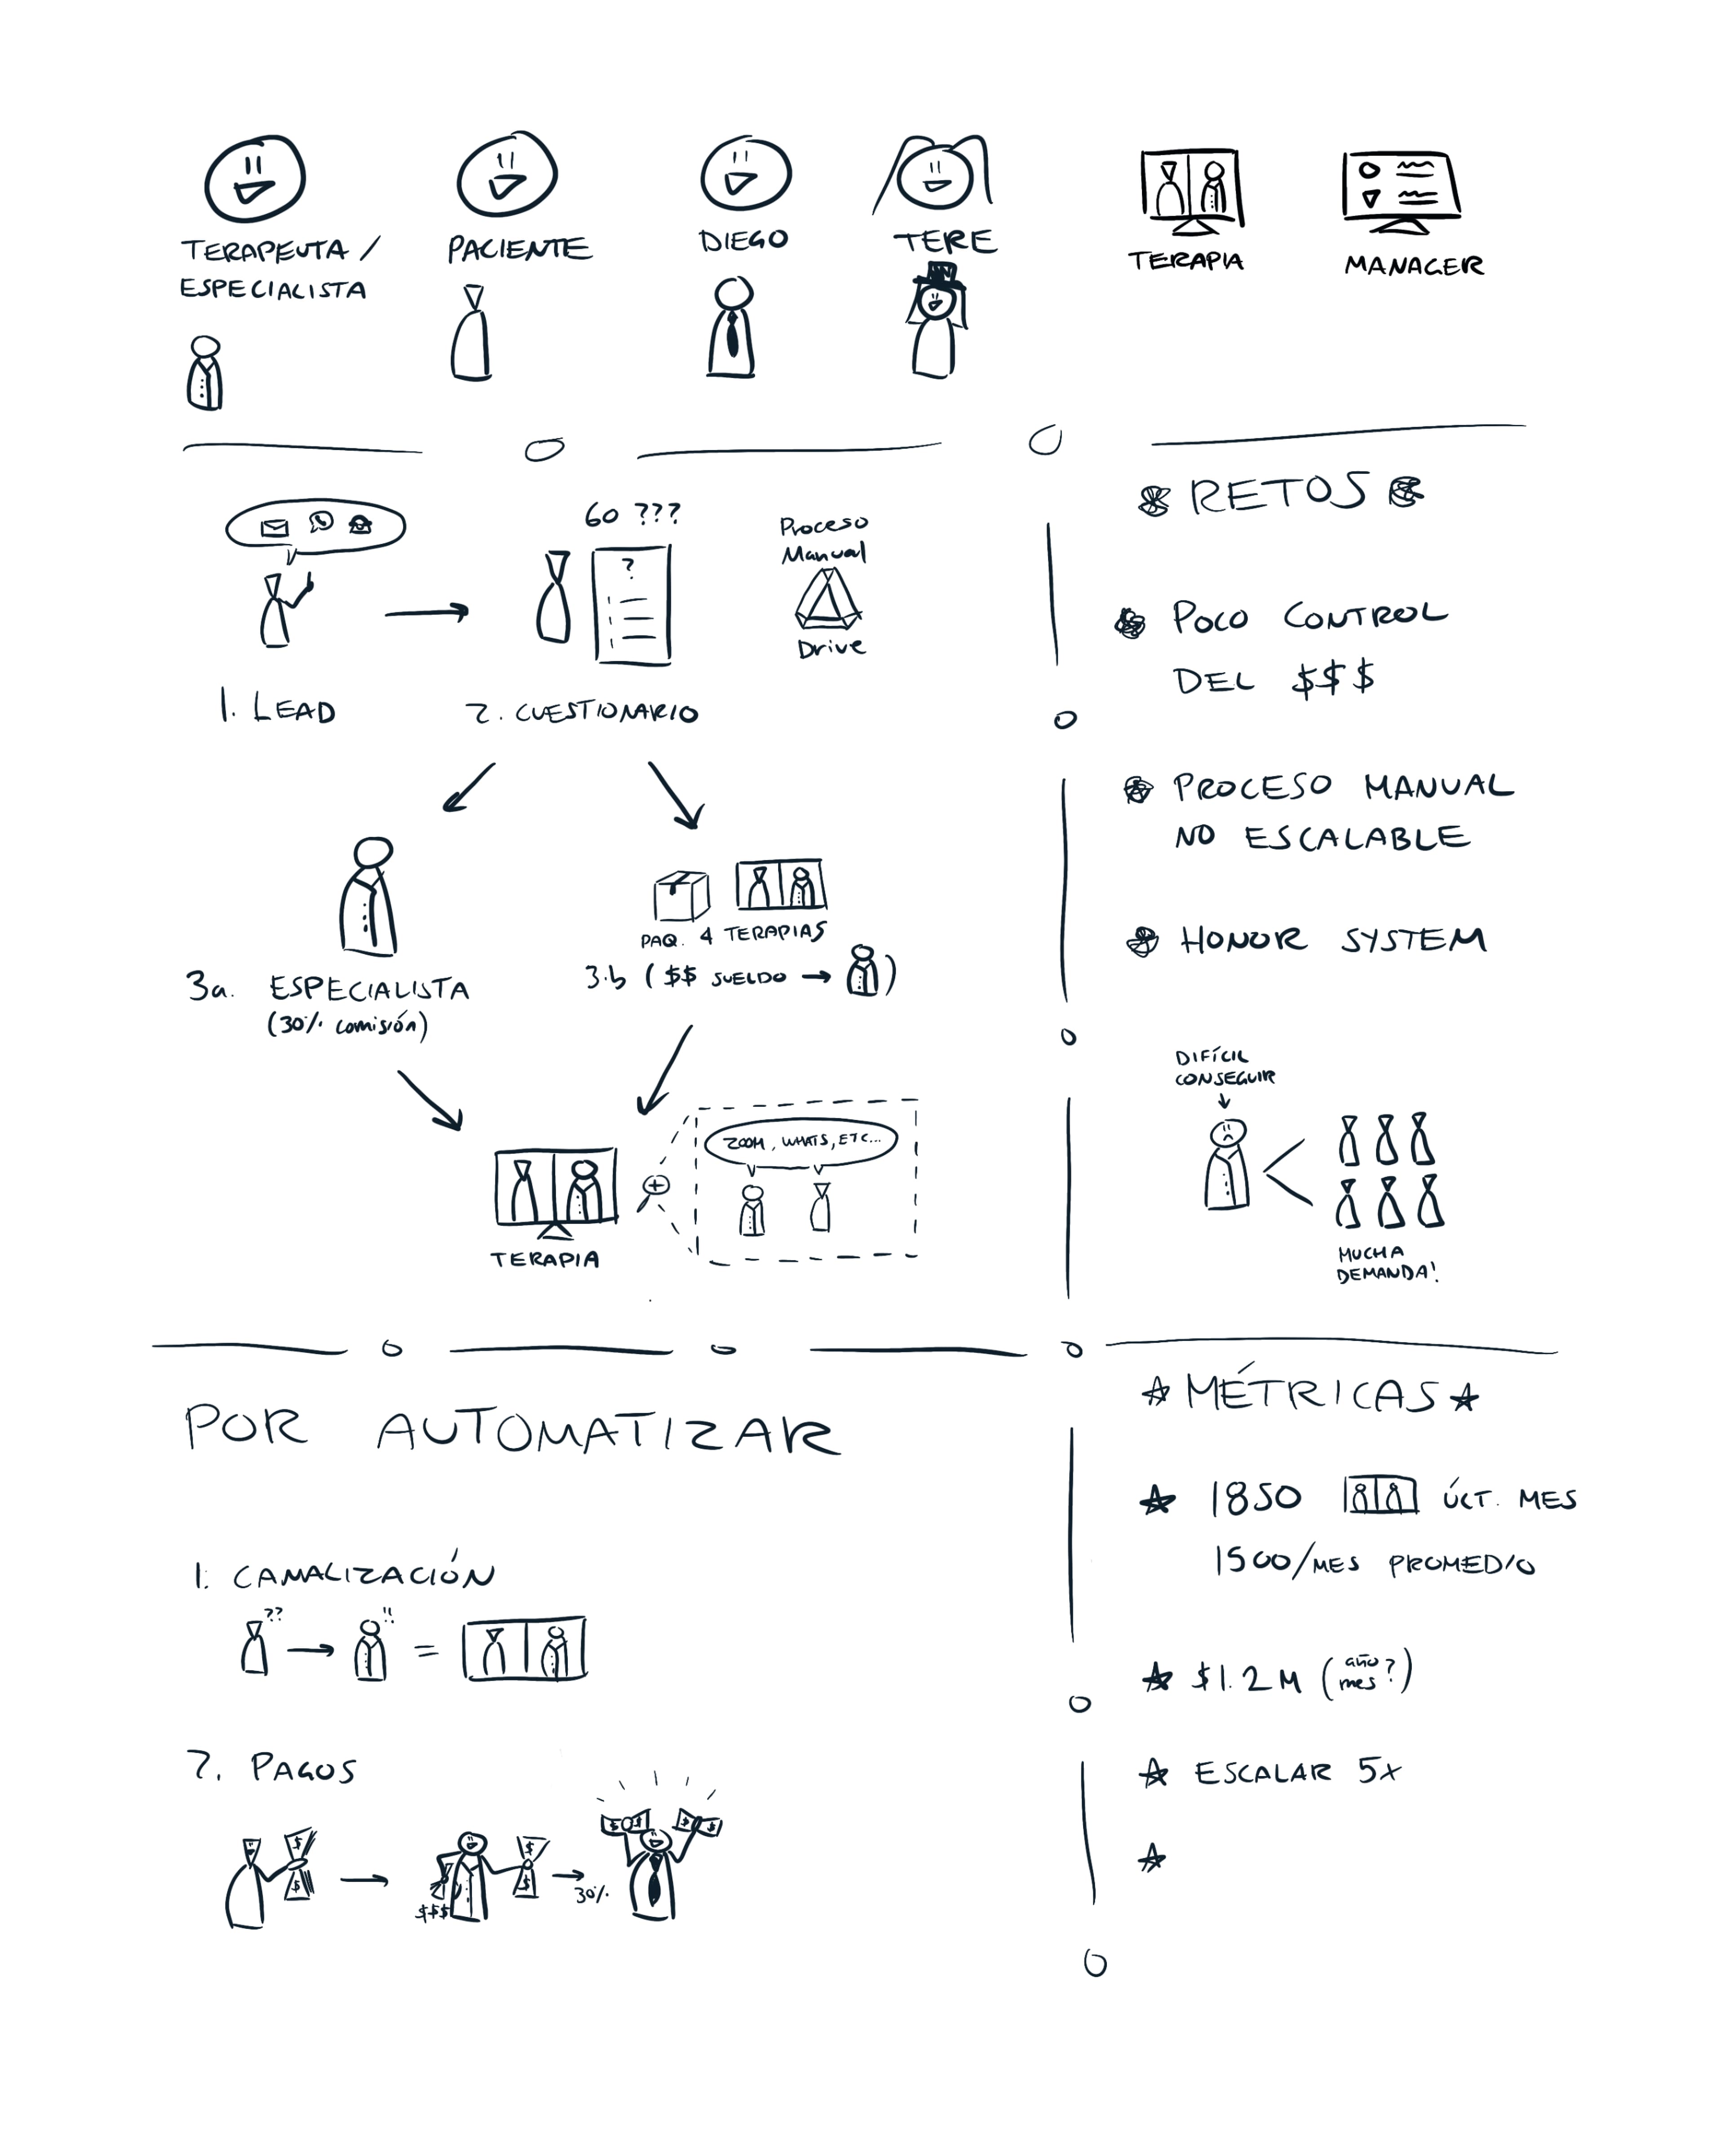 TERAPEUTA /
ESPECIALISTA
PACIENTE
DIEGO
TERE
TERAPIA
MANAGER
60 ???
?
Proceso
Manual
Drive
1. LEAD
2. CUESTIONARIO
3a. ESPECIALISTA
(30% comisión)
PAQ. 4 TERAPIAS
3.b ( $$ SUELDO → )
ZOOM, WHATS, ETC...
TERAPIA
RETOS
POCO CONTROL
DEL $$$
PROCESO MANUAL
NO ESCALABLE
HONOR SYSTEM
DIFÍCIL
CONSEGUIR
MUCHA
DEMANDA!
POR AUTOMATIZAR
1. CANALIZACIÓN
?? → !! =
2. PAGOS
$ $
$$$
$ $
30%
$ $
MÉTRICAS
1850 ÚLT. MES
1500/MES PROMEDIO
$1.2M (año mes?)
ESCALAR 5X